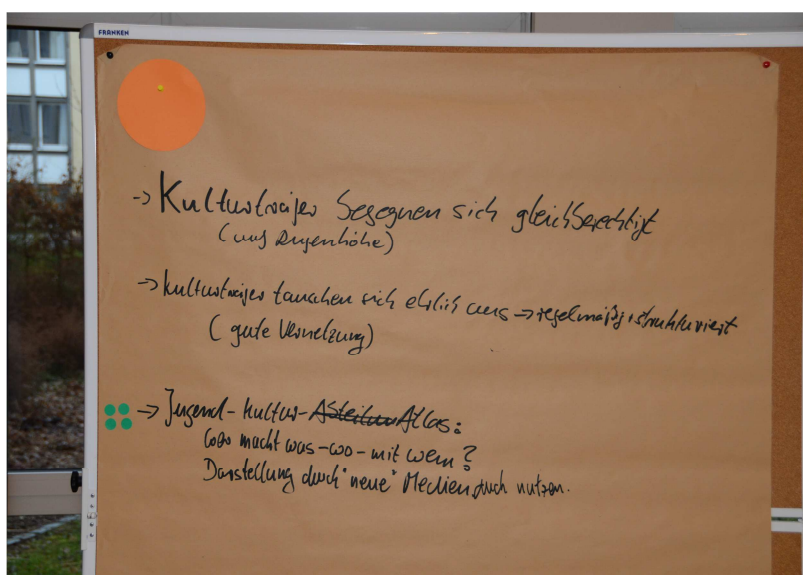 FRANKEN
-> Kulturträger begegnen sich gleichberechtigt
(auf Augenhöhe)
-> Kulturträger tauschen sich ehrlich aus -> regelmäßig + strukturiert
( gute Vernetzung)
-> Jugend-Kultur-Atlas:
Wer macht was-wo-mit wem?
Darstellung durch "neue" Medien auch nutzen.